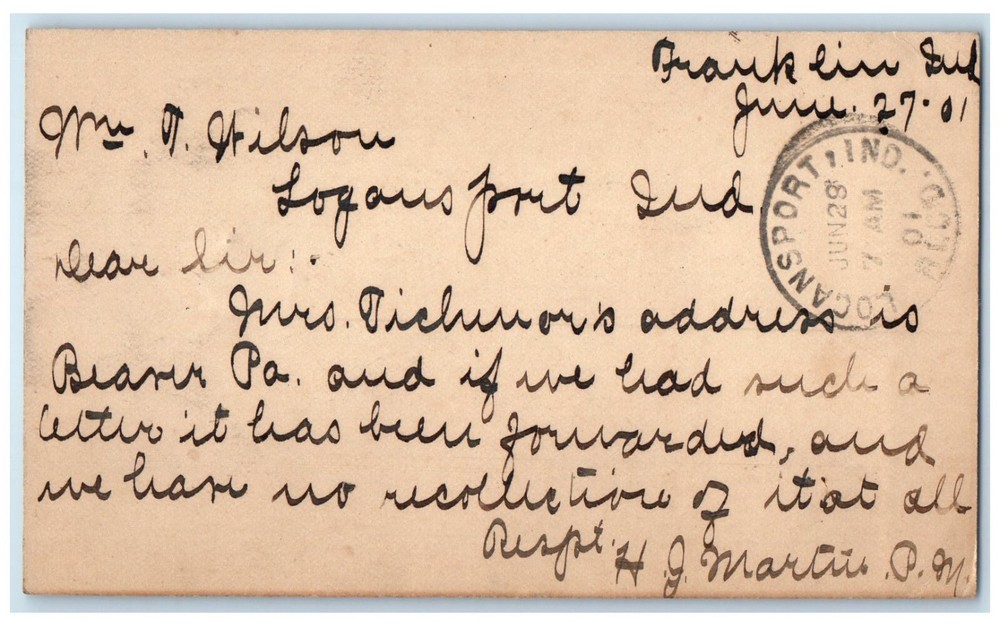 Franklin Ind
June. 27. 01
Wm. T. Wilson
Logansport Ind.
Dear Sir:-
Mrs. Tichenor's address is
Beaver Pa. and if we had such a
letter it has been forwarded, and
we have no recollection of it at all
Respt.
H. J. Martin. P. M.
LOGANSPORT, IND. REC'D.
JUN 28
7 AM
01